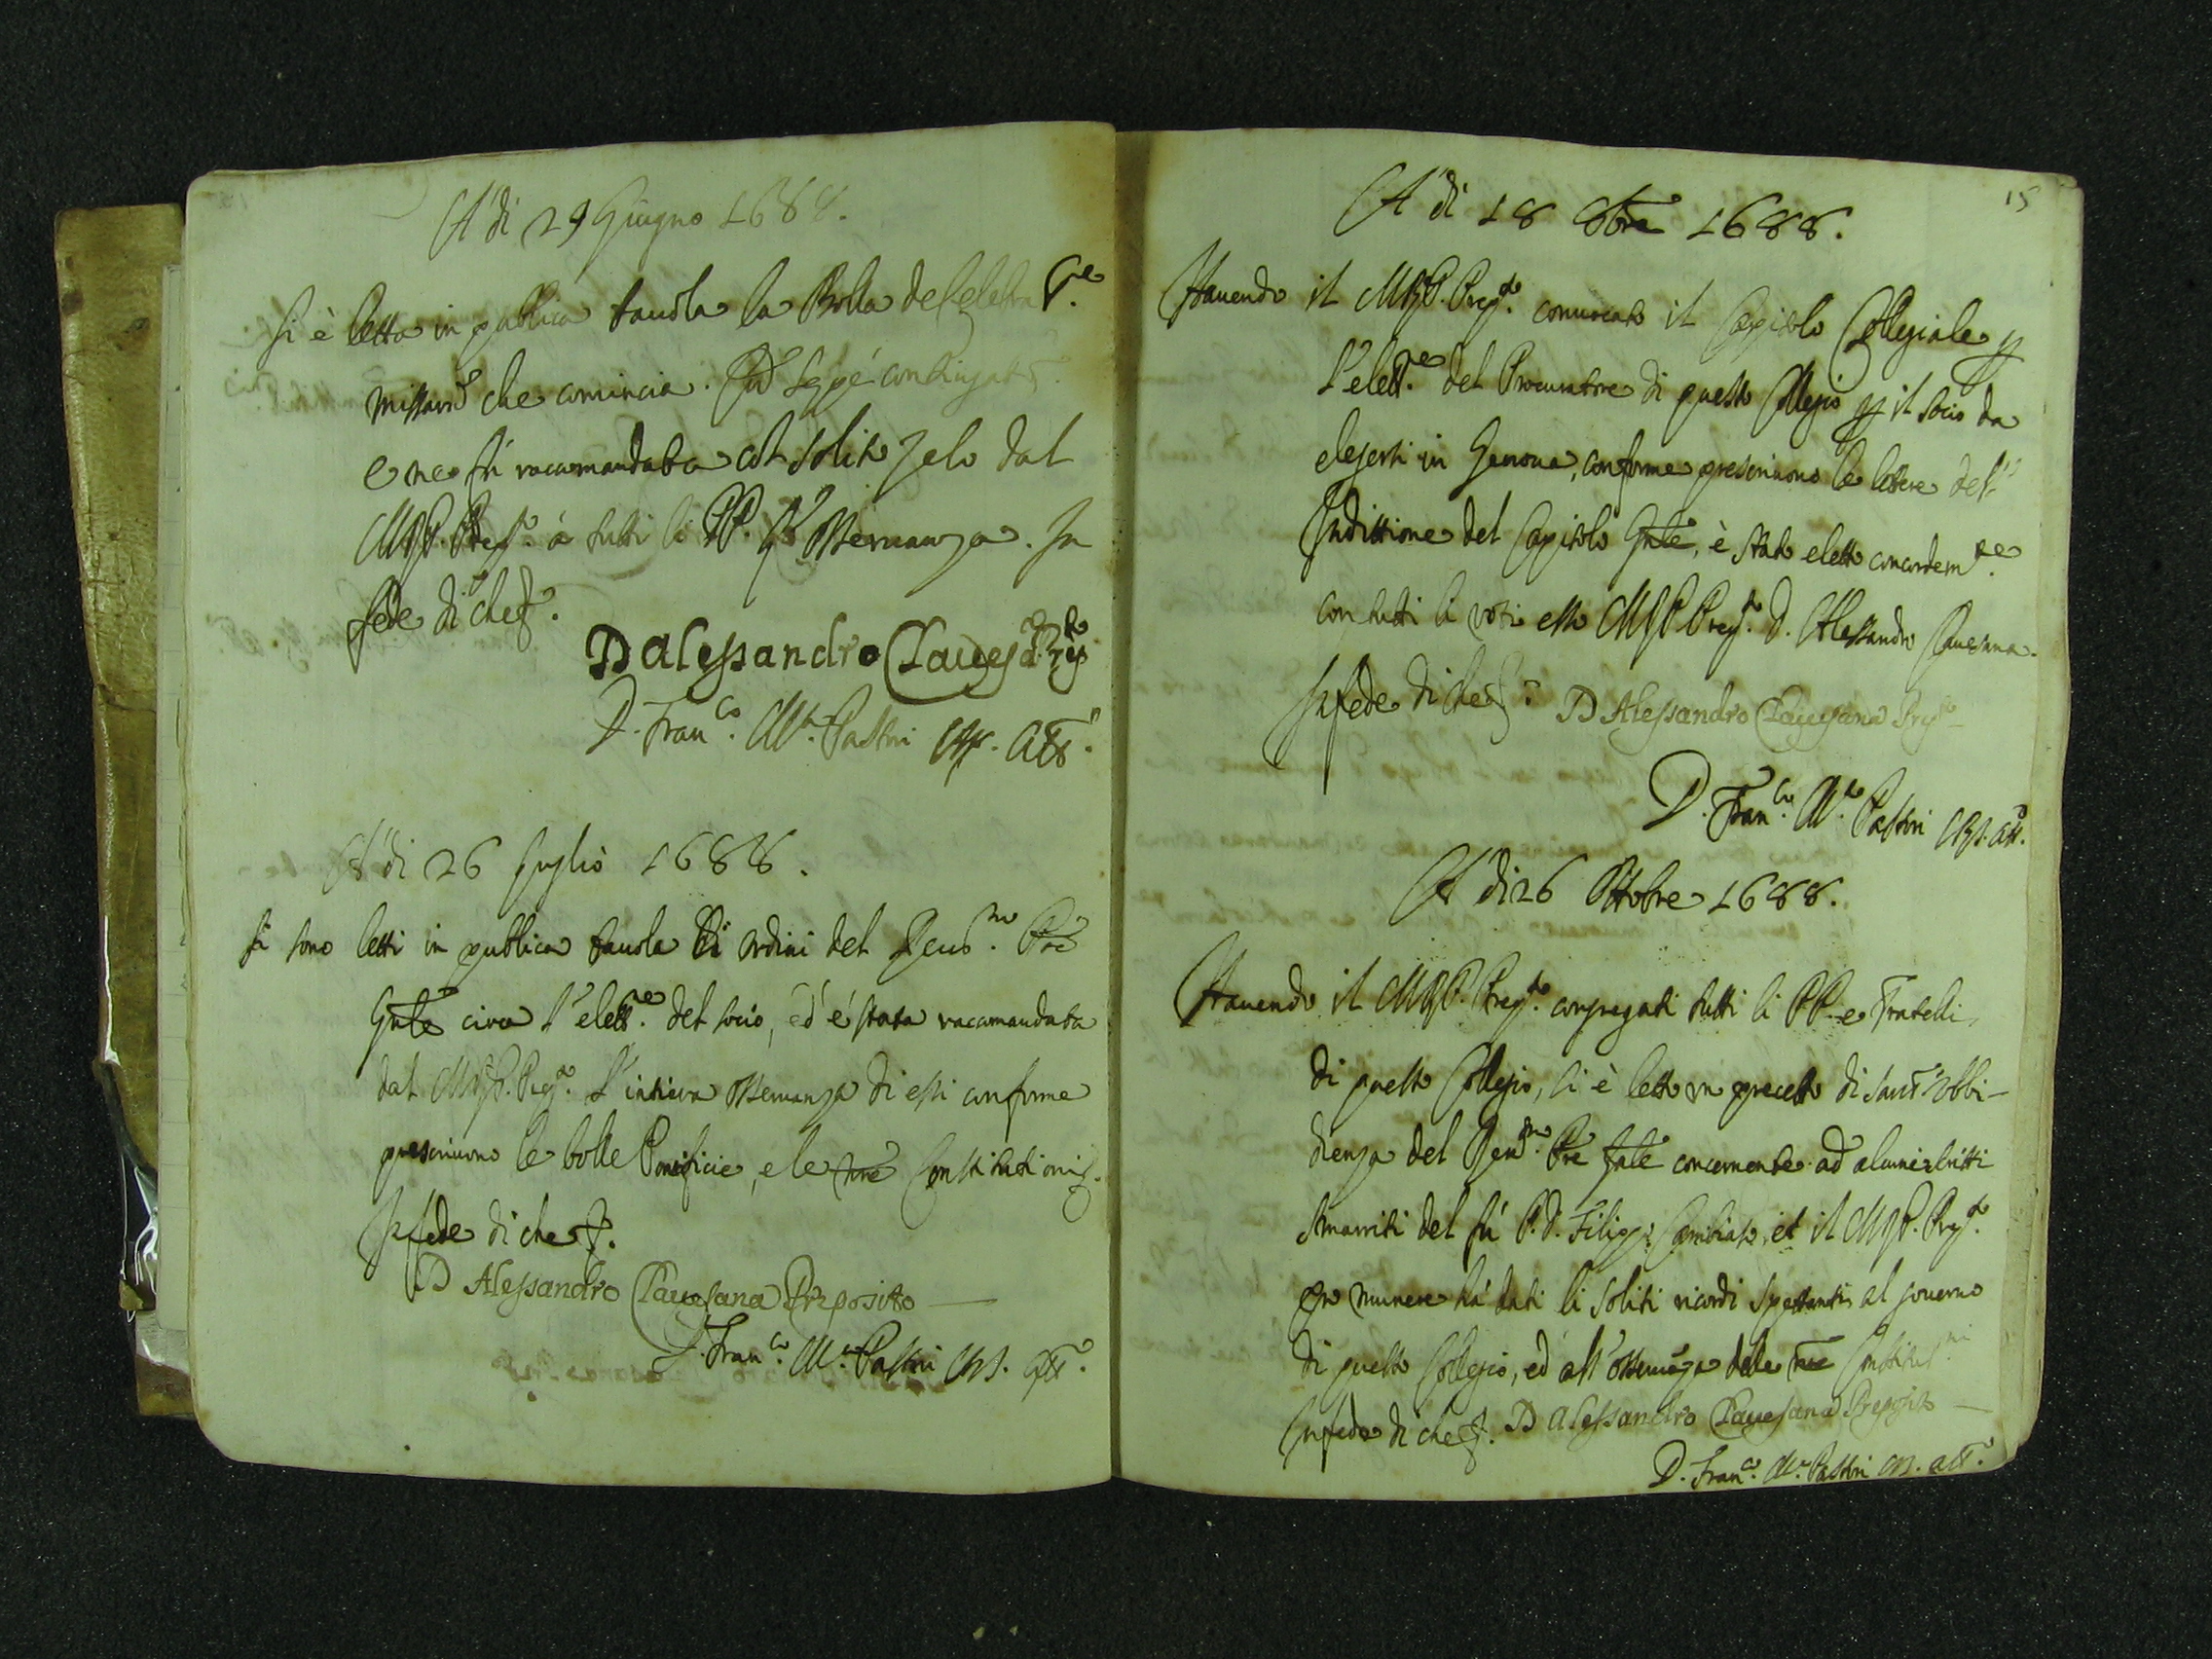 A' di 29 Giugno 1688.
Si è letta in publica tauola la Bolla de Celebrat.ne
missarū che comincia. Cū sępè contingat ę.
e ne fù racomandata col solito zelo dal
M.R.P. Prep.to à tutti li PP. l'osseruanza. In
fede di che ę.
D Alessandro Cauesa.a Prep.to
D. Fran.co M.a Pastori CRS. Att.o
A' di 26 Luglio 1688.
Si sono letti in publica tauola li ordini del Reu.mo Prē
Gnle circa l'elett.ne del socio, ed è stata racomandata
dal M.R.P. Prep.to l'intiera osseruanza di essi conforme
prescriuono le bolle Pontificie, e le nrē Constitutioni ę.
In fede di che ę.
D Alessandro Cauesana Preposito
D. Fran.co M.a Pastori CRS. Att.o
15
A' di 18 8bre 1688.
Hauendo il M.R.P. Prep.to conuocato il Capitolo Collegiale p
l'elett.ne del Procuratore di questo Collegio p il socio da
elegersi in Genoua, conforme prescriuono le lettere dell'
Indittione del Capitolo Gnle, è stato eletto concordem.te
con tutti li voti esso M.R.P. Prep.to D. Alessandro Cauesana.
In fede di che ę. D Alessandro Cauesana Prep.to
D. Fran.co M.a Pastori CRS. Att.
A' di 26 Ottobre 1688.
Hauendo il M.R.P. Prep.to congregati tutti li PP. e Fratelli
di questo Collegio, si è letto un precetto di Santa obbi-
dienza del Reu.mo Prē Gnle concernente ad alcuni scritti
smarriti del fù P.D. Filippo et il M.R.P. Prep.to
pro munere hà dati li soliti ricordi spettanti al gouerno
di questo Collegio, ed all'osseruāza delle nrē Constitut.ni
In fede di che ę. D Alessandro Cauesana Preposito
D. Fran.co M.a Pastori CRS. Att.o